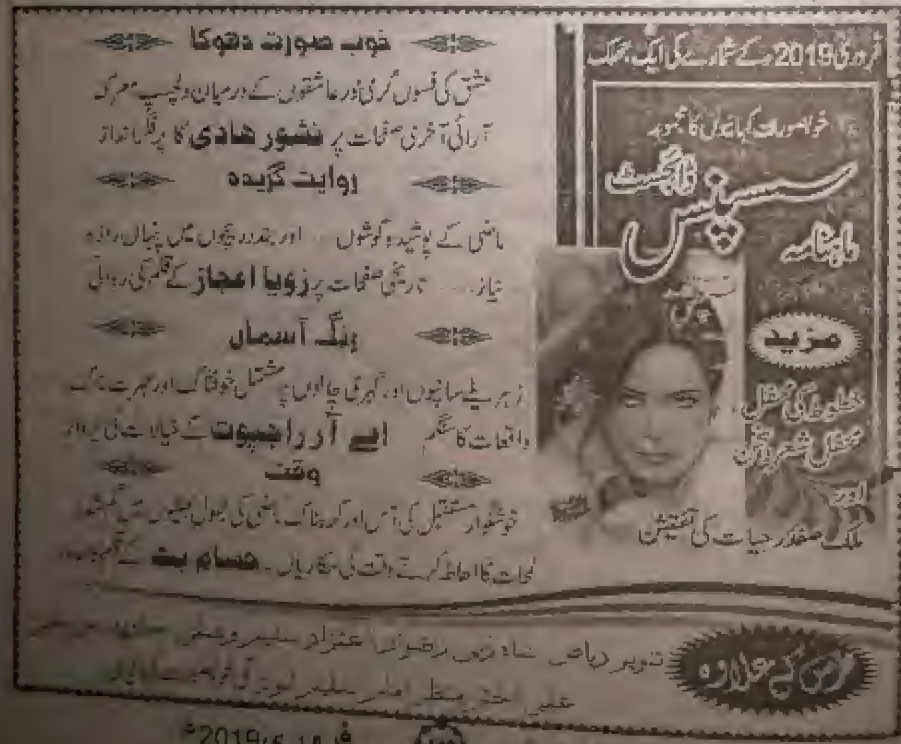 فروری 2019ء کے شمارے کی ایک جھلک
خوبصورت کہانیوں کا مجموعہ
سسپنس ڈائجسٹ
ماہنامہ
مزید
خطوط کی محفل،
محفل شعر و سخن
اور
ملک صفدر حیات کی تفتیش
خوب صورت دھوکا
عشق کی فسوں گری اور عاشقوں کے درمیان دلچسپ معرکہ
آرائی آخری صفحات پر نشور ہادی کا پرفکر انداز
روایت گزیدہ
ماضی کے پوشیدہ گوشوں ... اور بند دریچوں میں پنہاں راز و
نیاز .... تاریخی صفحات پر زویا اعجاز کے قلم کی روانی
رنگ آسماں
زہریلے سانپوں اور گہری چالوں پر مشتمل خوفناک اور عبرت ناک
واقعات کا سنگم اے آر راجپوت کے خیالات کی پرواز
وقت
خوشگوار مستقبل کی آس اور کربناک ماضی کی بھول بھلیوں میں گمشدہ
لمحات کا احاطہ کرتے وقت کی مکاریاں۔ حسام بٹ کے قلم سے
اس کے علاوہ
تنویر ریاض، شاہ زین رضوان، اعتزاز سلیم وصلی،
منظر امام، سلیم انور کی
فروری 2019ء